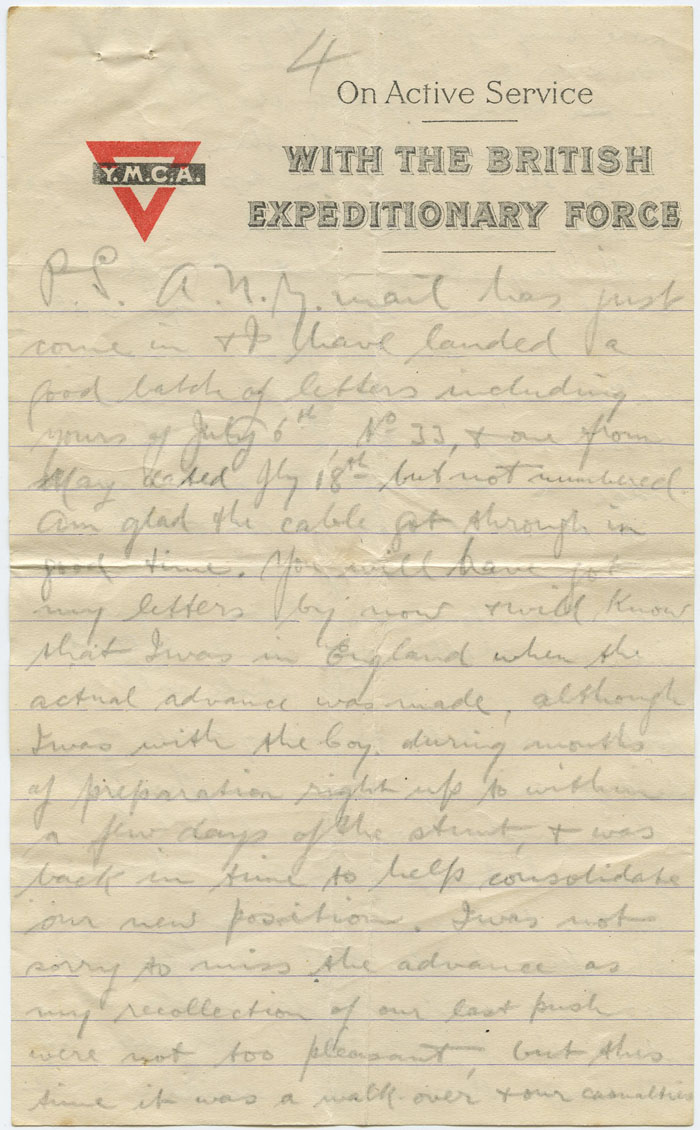 4
On Active Service
WITH THE BRITISH
EXPEDITIONARY FORCE
Y.M.C.A.
P.S. A N.Z. mail has just
come in & I have landed a
good batch of letters including
yours of July 6th, No 33, & one from
May dated Jly 18th but not numbered.
Am glad the cable got through in
good time. You will have got
my letters by now & will know
that I was in England when the
actual advance was made, although
I was with the Coy. during months
of preparation right up to within
a few days of the stunt, & was
back in time to help consolidate
our new position. I was not
sorry to miss the advance as
my recollection of our last push
were not too pleasant, but this
time it was a walk-over & our casualties